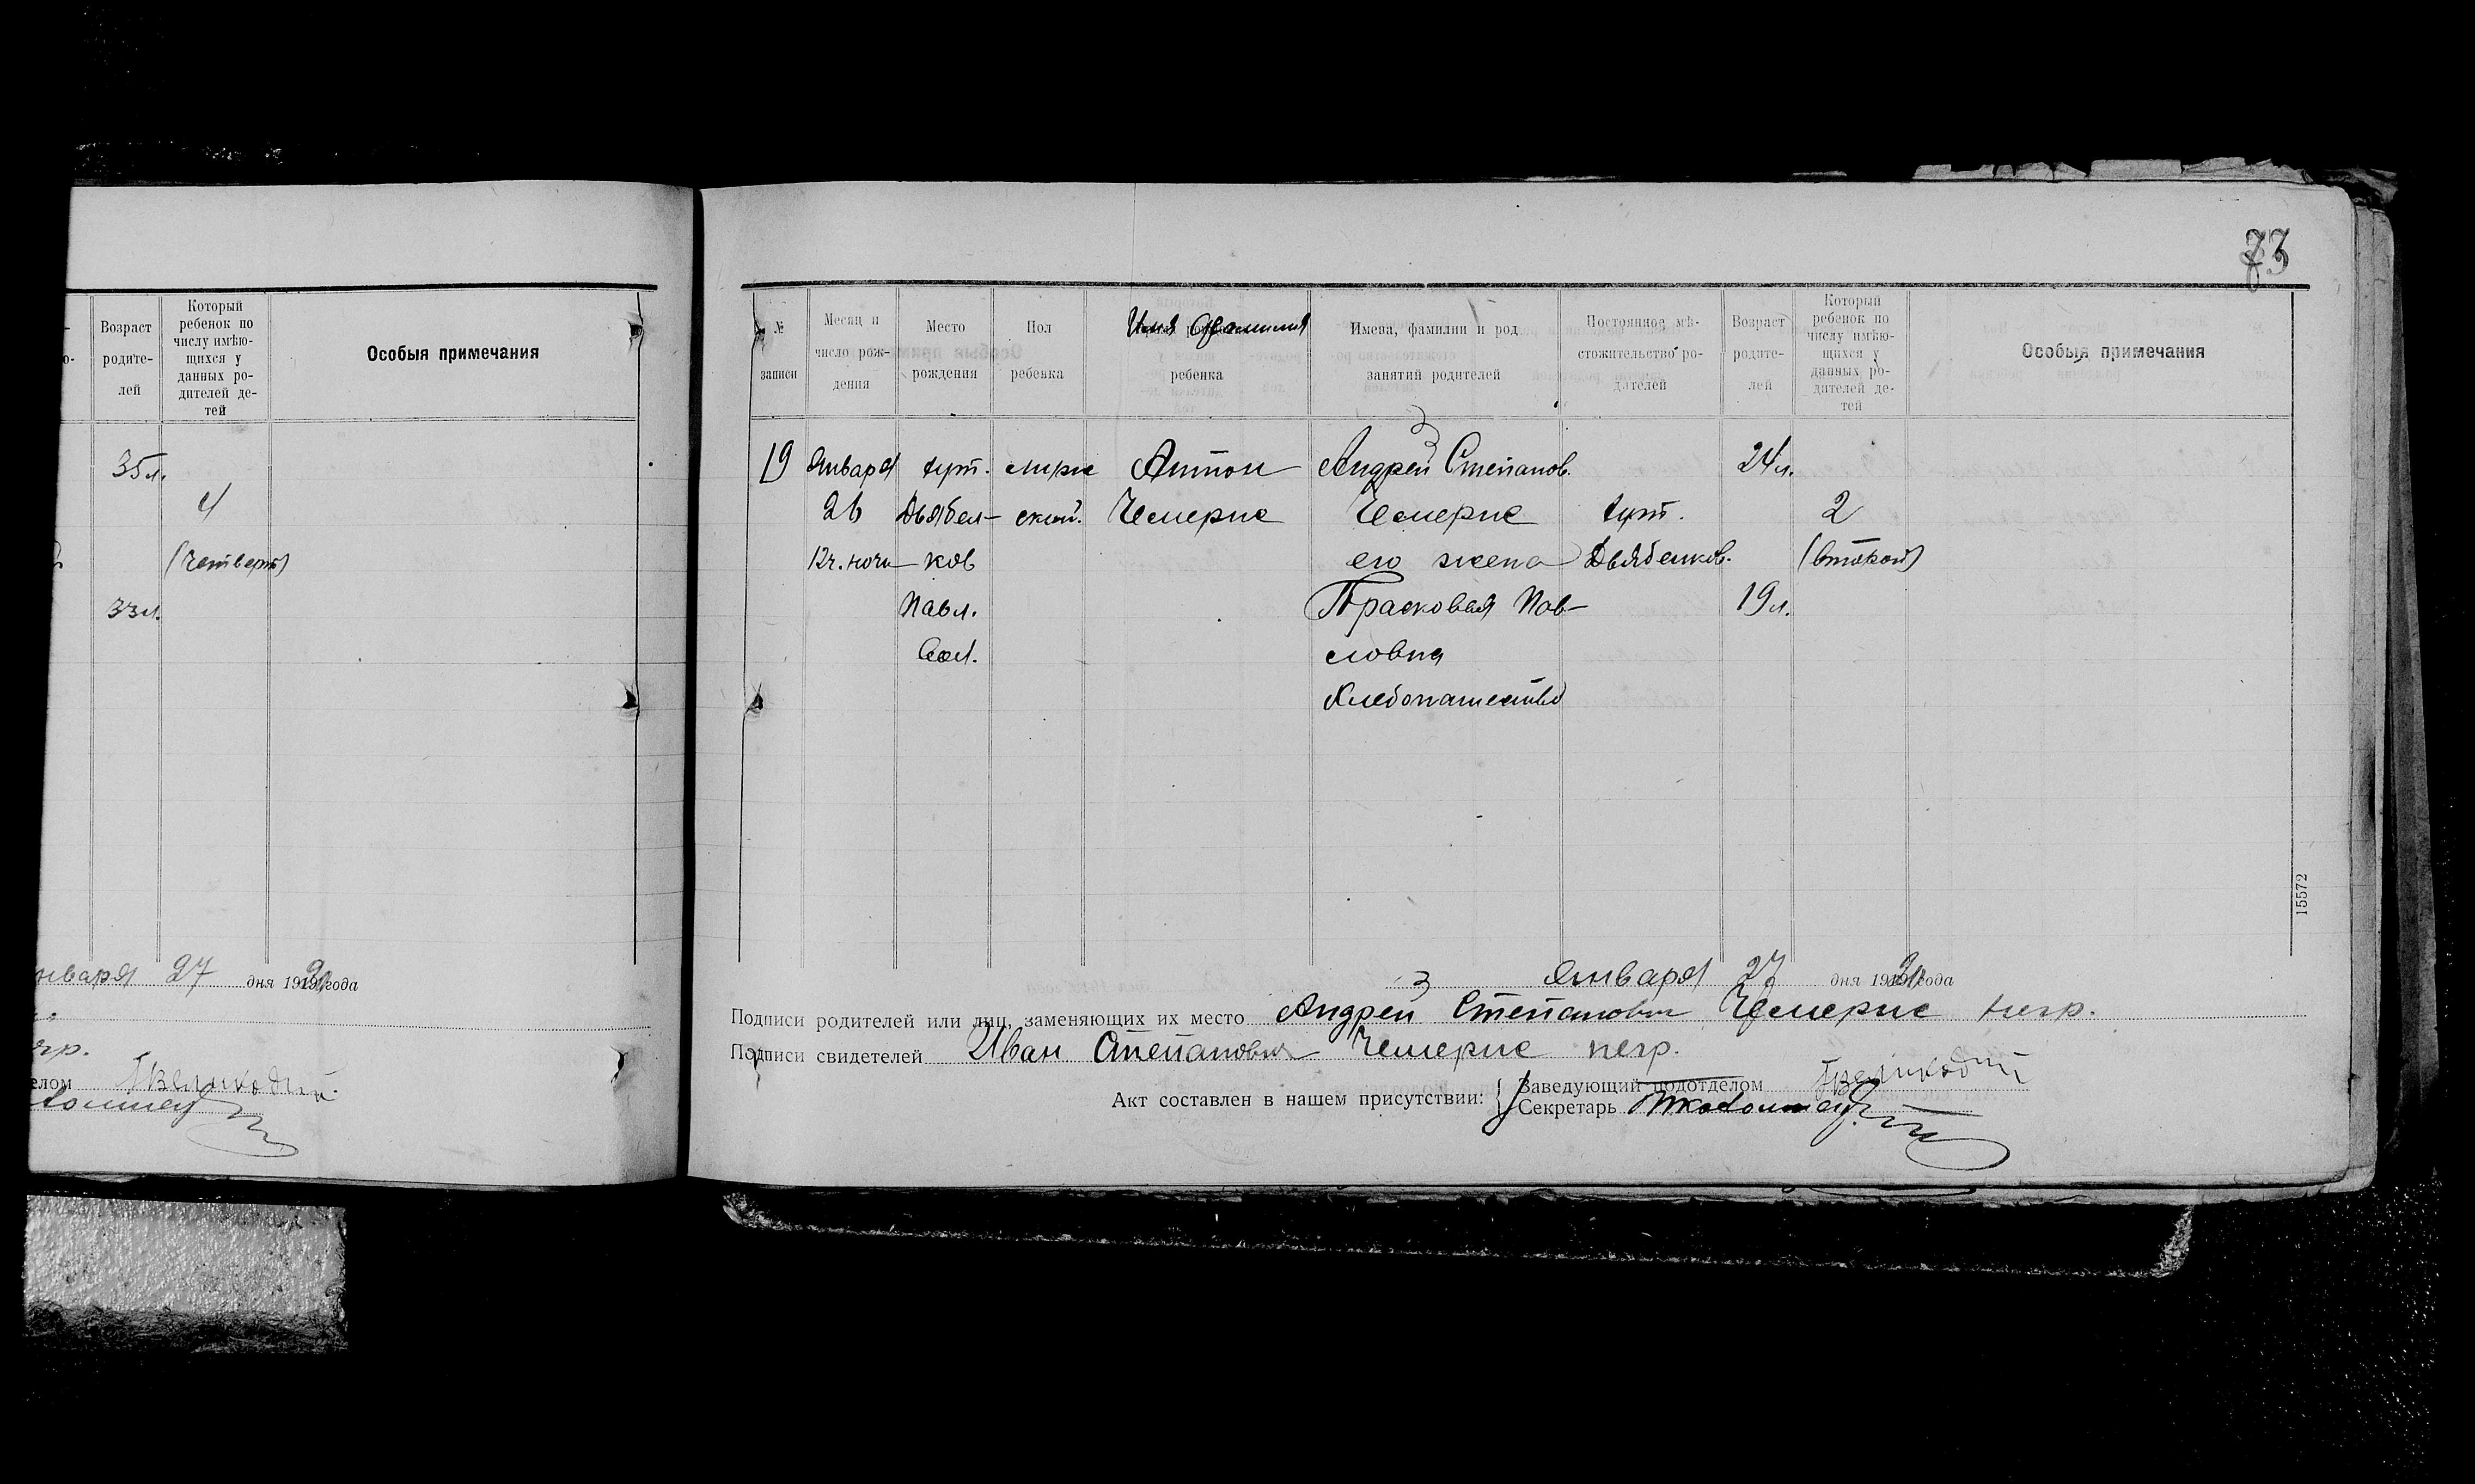 Возраст родителей
Который ребенок по числу имѣющихся у данных родителей детей
Особыя примечания
35 л.
4
(Четверт)
33 л.
января 27 дня 19 года
73
№ записи
Месяц и число рождения
Место рождения
Пол ребенка
Имя фамилия ребенка
Имена, фамилии и род занятий родителей
Постоянное мѣстожительство родителей
Возраст родителей
Который ребенок по числу имѣю-щихся у данных родителей детей
Особыя примечания
19 Января хут. мужс Антон Андрей Степанов. 24 л.
26 Дьябел- ский. Чемерис Чемерис хут. 2
12 ч. ночи ков его жена Дьябелков. (второй)
Павл. Прасковья Пав- 19 л.
Вол. ловна
Хлебопашество
15572
Января 27 дня 19 года
Подписи родителей или лиц, заменяющих их место Андрей Степанович Чемерис негр.
Подписи свидетелей Иван Степанович Чемерис негр.
Акт составлен в нашем присутствии: Заведующий подотделом
Секретарь